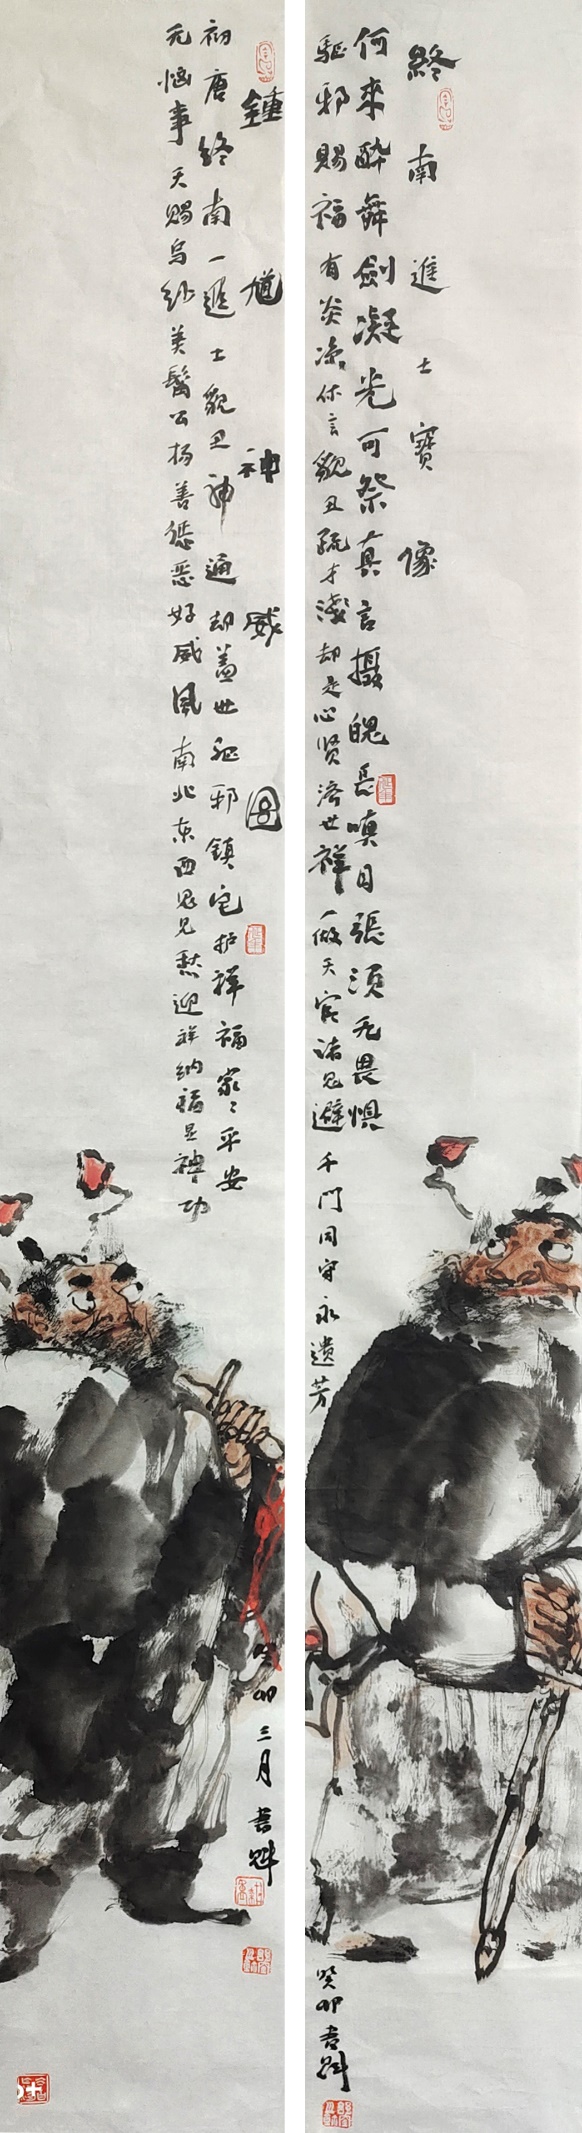 終南進士寶像
何來醉舞劍凝光可祭真言攝魄長嗔目張須无畏惧
驅邪賜福有炎凉休言貌丑疏才淺却是心贤济世祥一做天官诸鬼避千門同守永遗芳
癸卯書魁
鍾馗神威圖
初唐終南一進士貌丑神通却盖世驱邪鎮宅护祥福家家平安
无恼事天赐乌纱美髯公扬善惩恶好威風南北东西鬼见愁迎祥纳福显神功
癸卯三月書魁